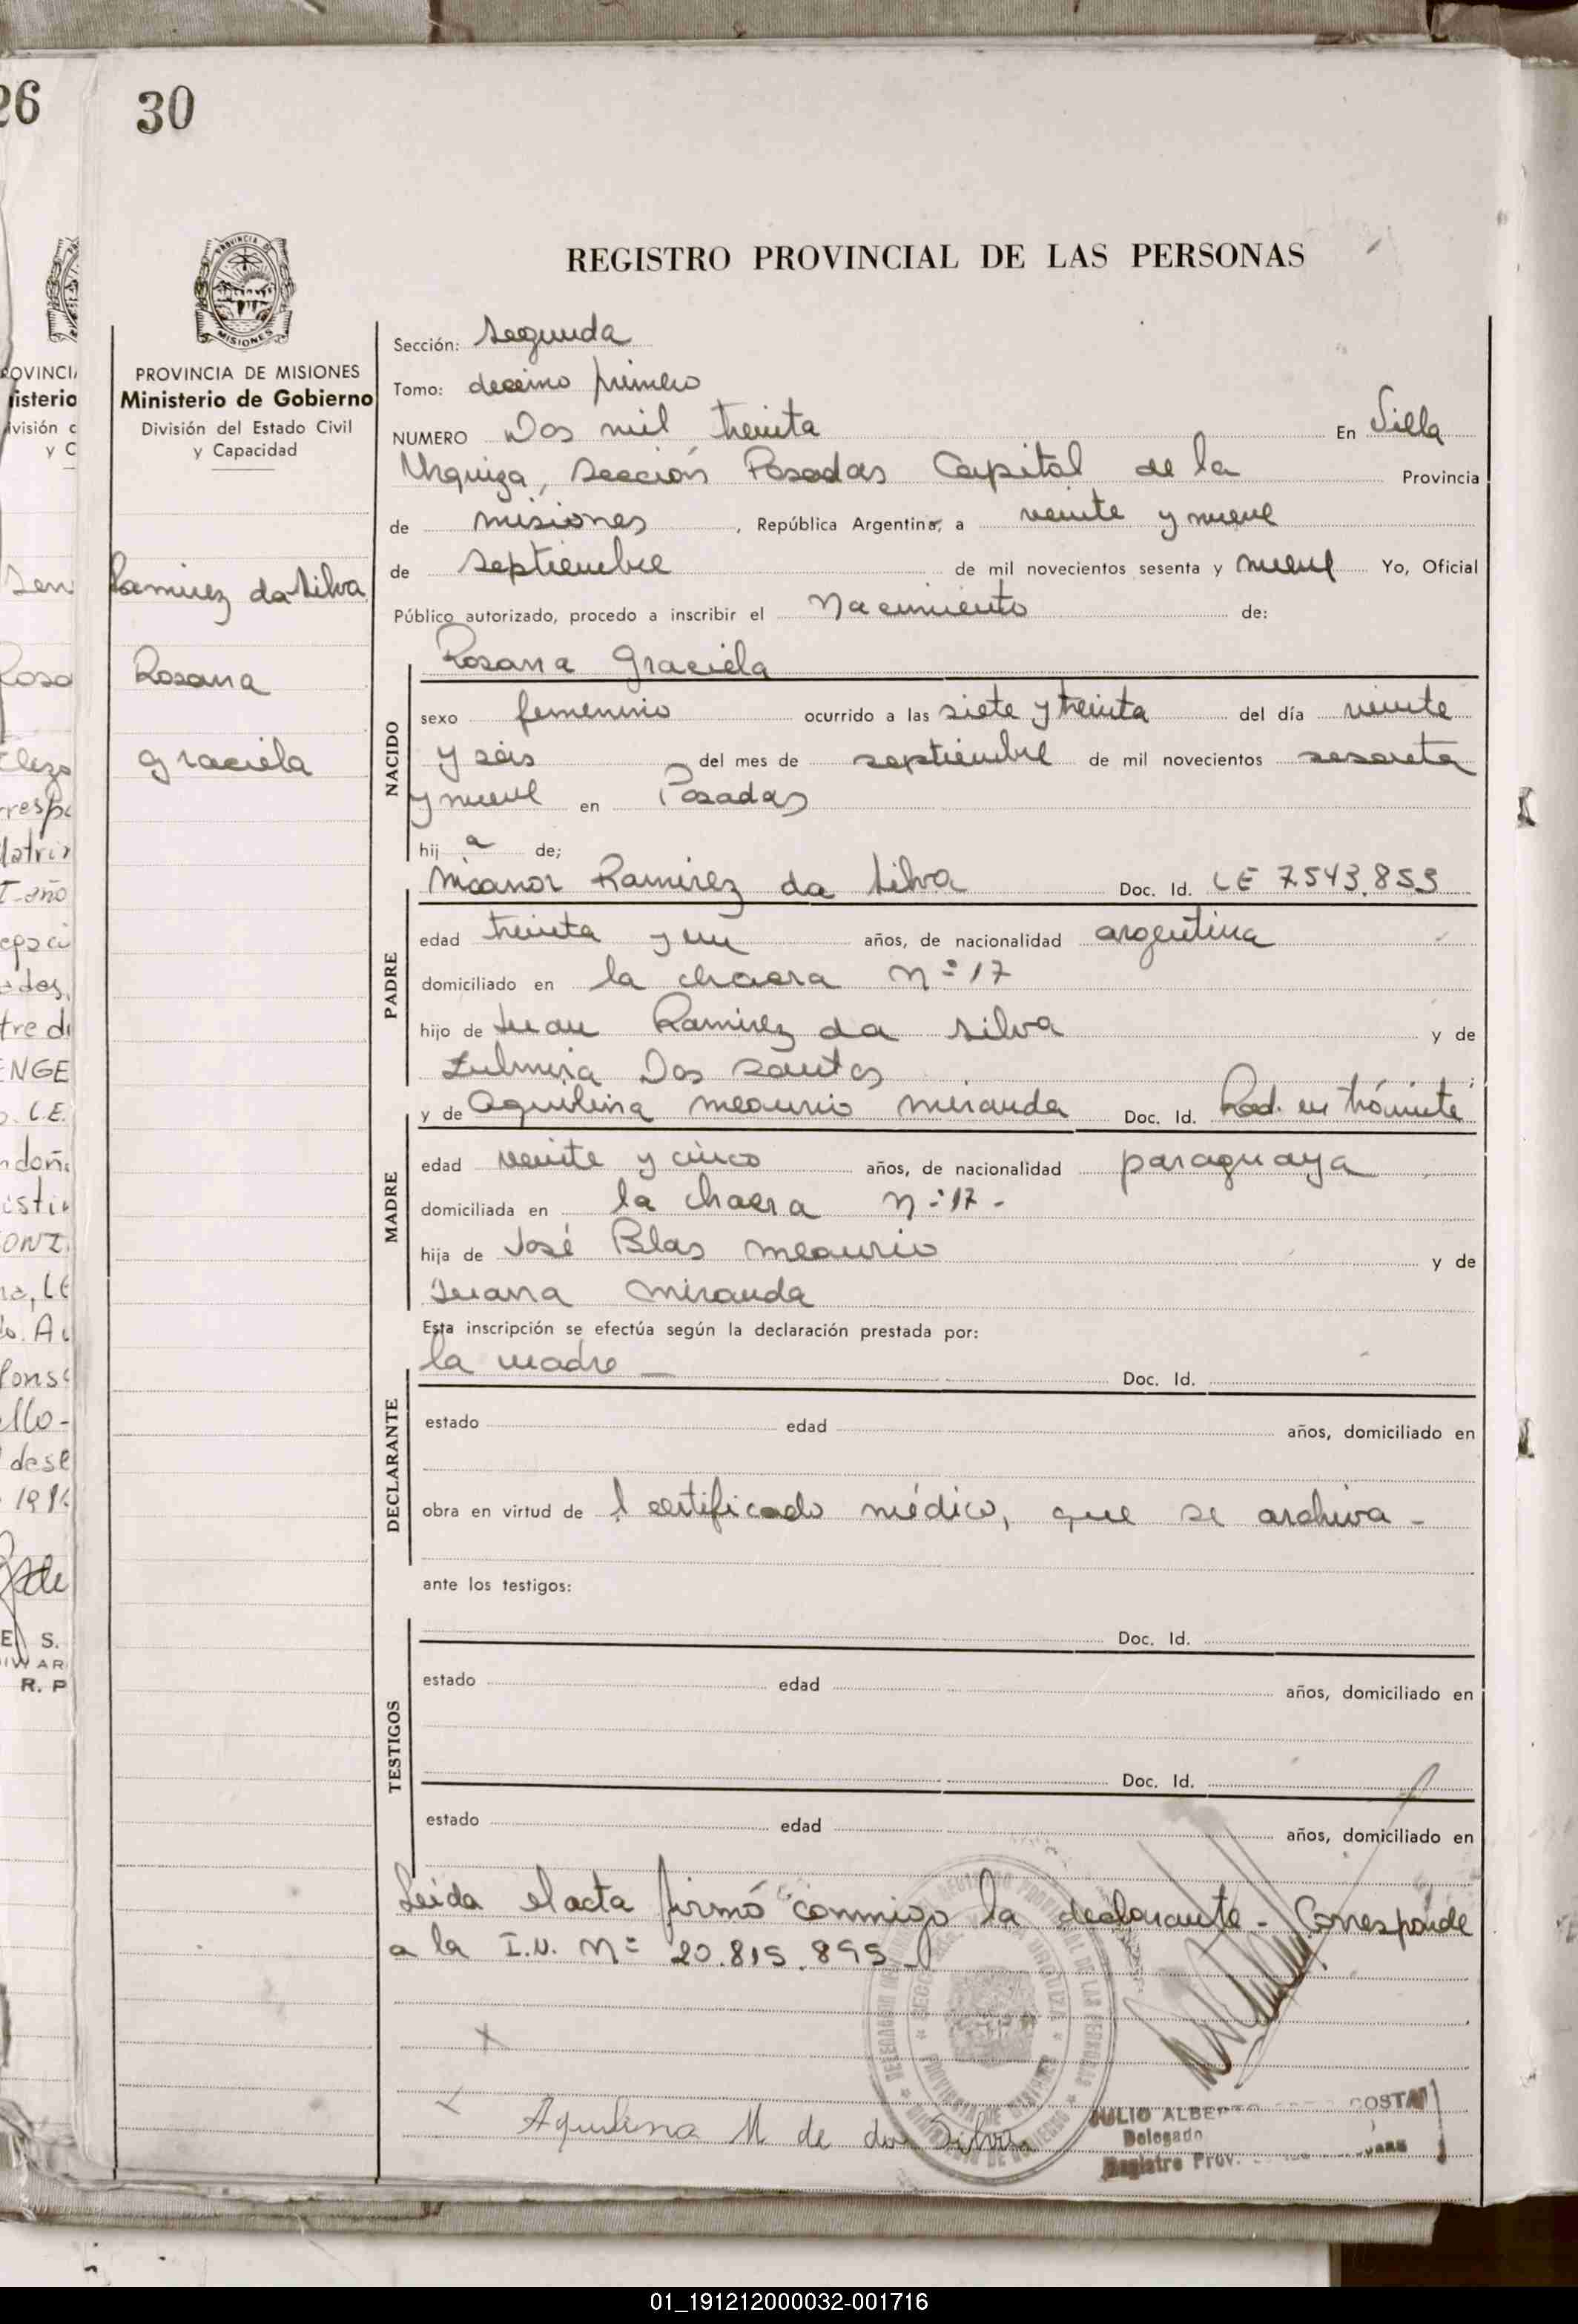 26
30
REGISTRO PROVINCIAL DE LAS PERSONAS
PROVINCIA DE MISIONES
Ministerio de Gobierno
División del Estado Civil
y Capacidad
Ramirez da Silva
Rosana
Graciela
Sección: Segunda
Tomo: decimo primero
NUMERO Dos mil treinta En Villa
Urquiza, Sección Posadas Capital de la Provincia
de misiones, República Argentina, a veinte y nueve
de septiembre de mil novecientos sesenta y nueve Yo, Oficial
Público autorizado, procedo a inscribir el Nacimiento de:
Rosana Graciela
NACIDO
sexo femenino ocurrido a las siete y treinta del día veinte
y seis del mes de septiembre de mil novecientos sesenta
y nueve en Posadas
hij a de;
Nicanor Ramirez da Silva Doc. Id. LE 7.543.859
PADRE
edad treinta y un años, de nacionalidad argentina
domiciliado en la chacra nº 17
hijo de Juan Ramirez da Silva y de
Zulmira Dos Santos
y de Aquilina meaurio miranda Doc. Id. Rad. en trámite
MADRE
edad veinte y cinco años, de nacionalidad paraguaya
domiciliada en la chacra nº 17 -
hija de José Blas meaurio y de
Juana miranda
Esta inscripción se efectúa según la declaración prestada por:
la madre Doc. Id.
DECLARANTE
estado edad años, domiciliado en
obra en virtud de l certificado médico, que se archiva -
ante los testigos:
TESTIGOS
Doc. Id.
estado edad años, domiciliado en
Doc. Id.
estado edad años, domiciliado en
Leida el acta firmó conmigo la declarante - Corresponde
a la I.N. Nº 20.815.895 -
Aquilina M de da Silva
JULIO ALBERTO COSTA
Delegado
Registro Prov.
01_191212000032-001716